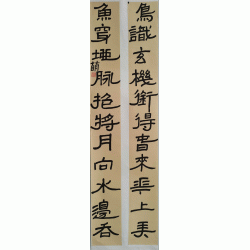 鳥識玄機銜得旾來華上弄
魚穿地脈挹將月向水邊吞